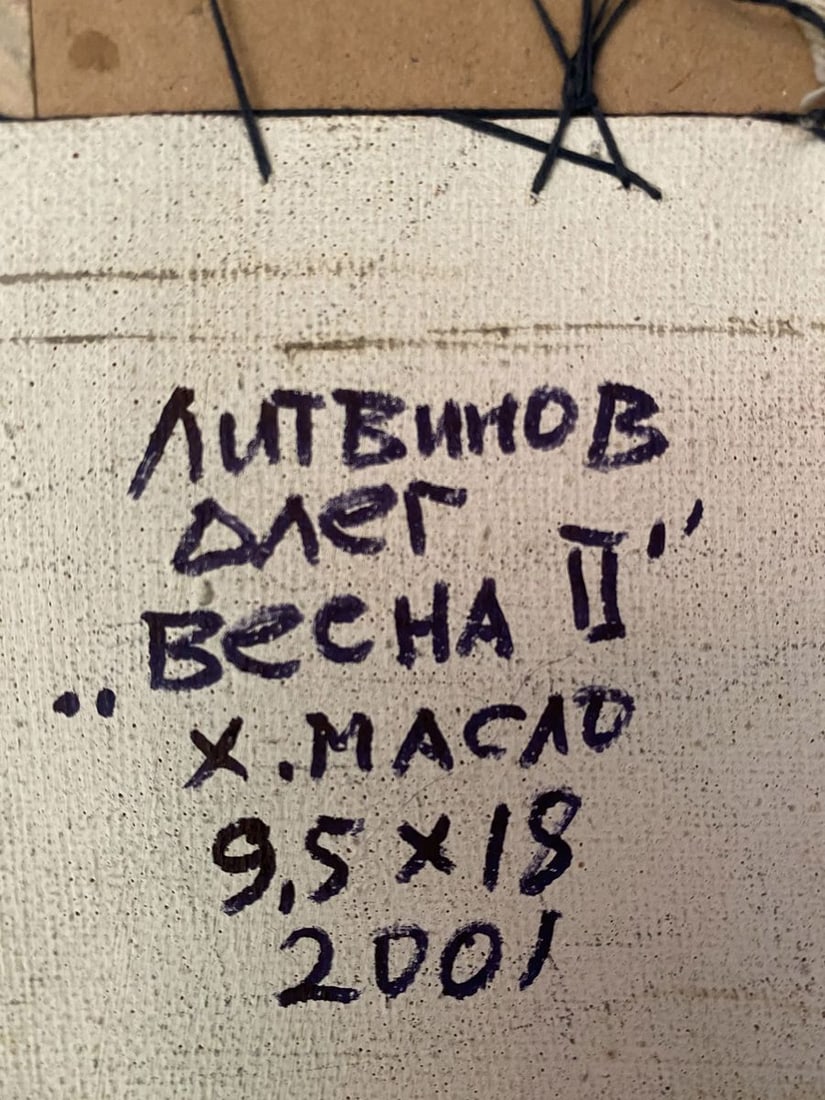 Литвинов
Олег
„Весна II”
х.масло
9,5×18
2001